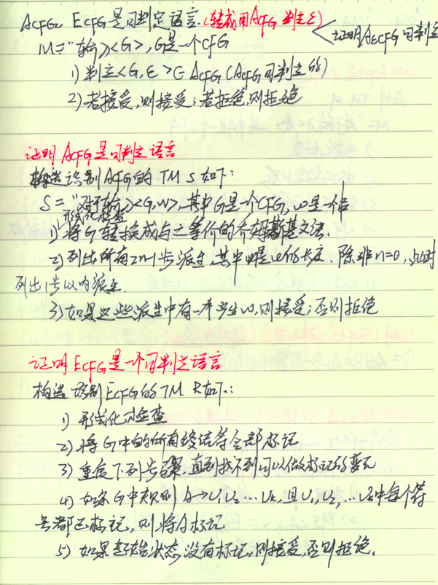 A_CFG, E_CFG是可判定语言.(转成用A_CFG判定ε)
M="输入<G>,G是一个CFG
<证明A_εCFG可判定
1)判定<G,ε>∈A_CFG(A_CFG可判定的)
2)若接受,则接受;若拒绝,则拒绝
证明A_CFG是可判定语言
构造识别A_CFG的TM S如下:
S="对于输入<G,w>,其中G是一个CFG,w是一个串
形式化检查
1)将G转换成与之等价的乔姆斯基文法.
2)列出所有2n-1步派生,其中n是w的长度,除非n=0,此时
列出1步以内派生
3)如果这些派生中有一个产生w,则接受;否则拒绝
证明E_CFG是一个可判定语言
构造识别E_CFG的TM R如下:
1)形式化检查
2)将G中的所有终结符全部标记
3)重复下列步骤,直到找不到可以做标记的变元
4)如G中有规则A→U₁U₂…Uₖ,且U₁,U₂,…Uₖ中每个符
号都已标记,则将A标记
5)如果起始状态没有标记,则接受,否则拒绝.